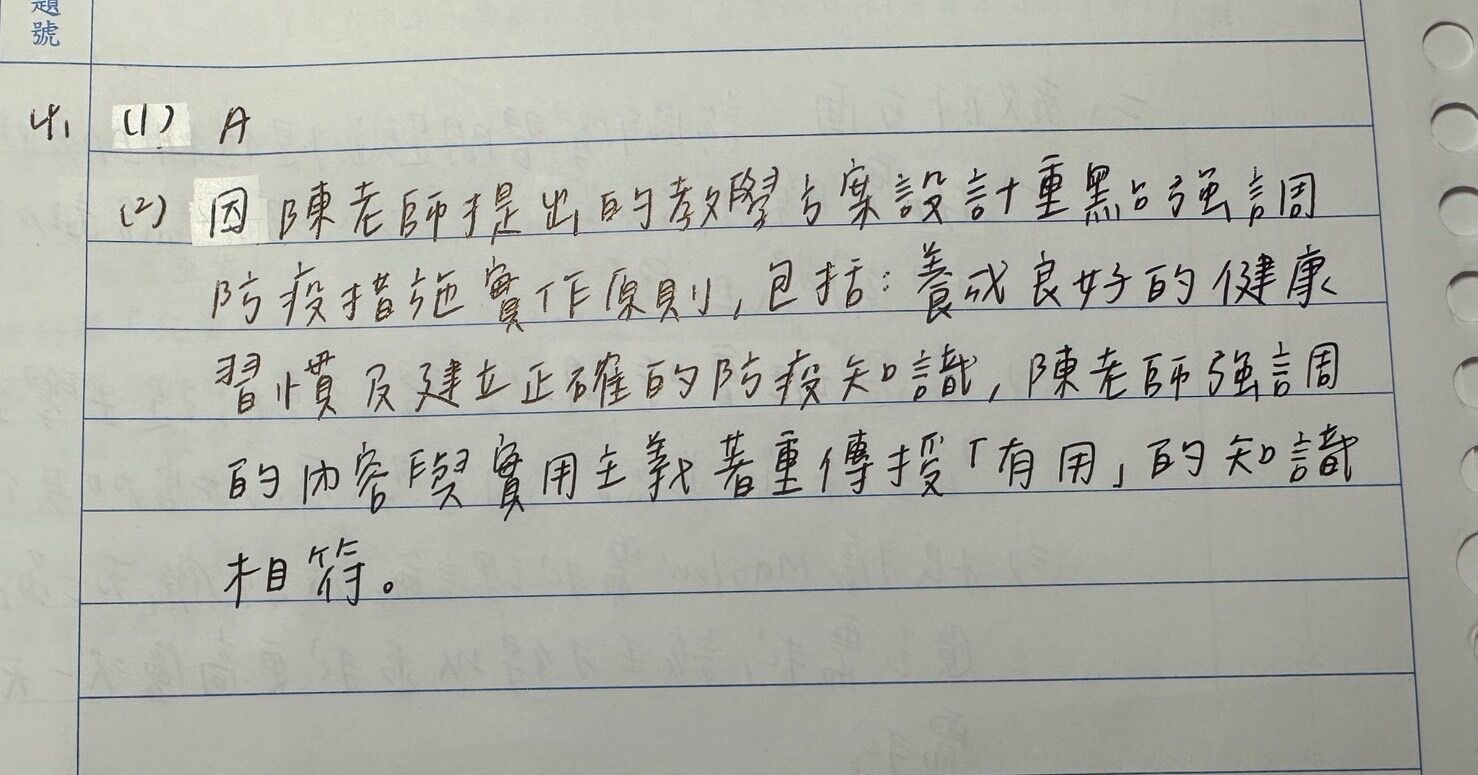 題號
4. (1) A
(2) 因陳老師提出的教學方案設計重點強調
防疫措施實作原則,包括:養成良好的健康
習慣及建立正確的防疫知識,陳老師強調
的內容與實用主義著重傳授「有用」的知識
相符。